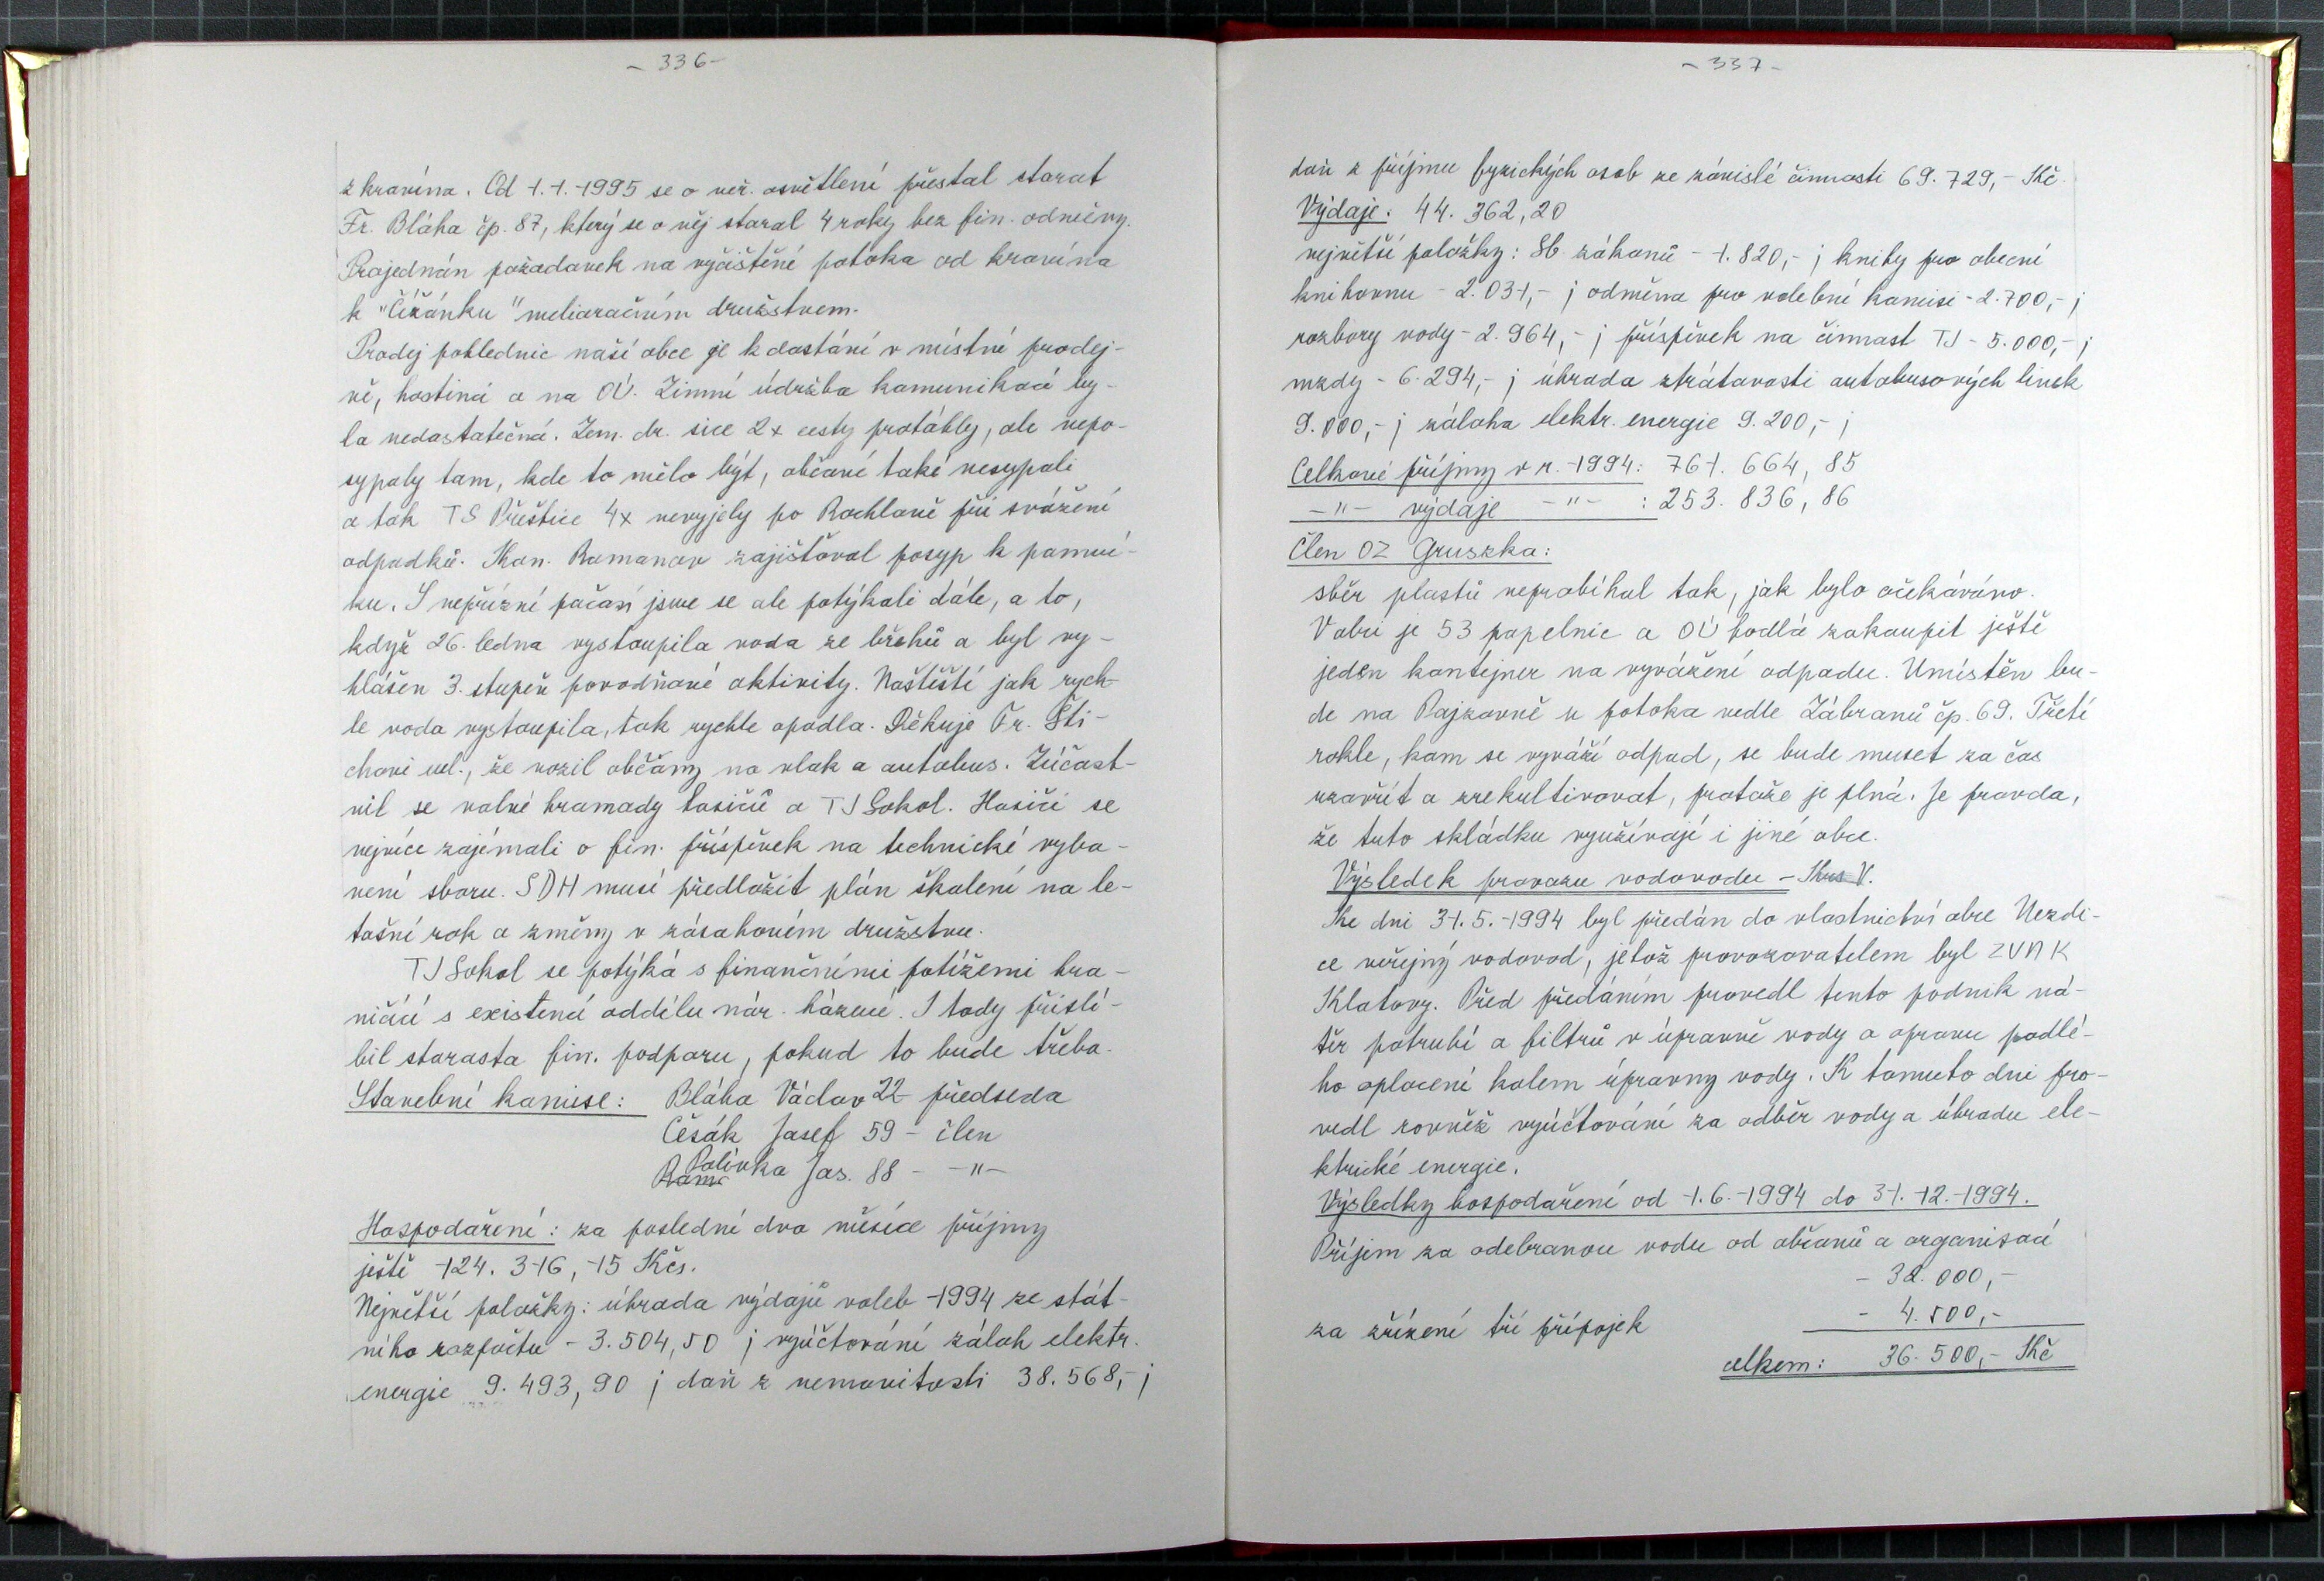 - 336 -
z kravína. Od 1.1.1995 se o veř. osvětlení přestal starat
Fr. Bláha čp. 87, který se o něj staral 4 roky bez fin. odměny.
Projednán požadavek na vyčištění potoka od kravína
k "Čížánku" melioračním družstvem.
Prodej pohlednic naší obce je k dostání v místní prodej-
ně, hostinci a na OÚ. Zimní údržba komunikací by-
la nedostatečná. Zem. dr. sice 2x cesty protáhly, ale nepo-
sypaly tam, kde to mělo být, občané také nesypali
a tak TS Přeštice 4x nevyjely po Rochlově při svážení
odpadků. Kon. Romanov zajišťoval posyp k pomní-
ku. S nepřízní počasí jsme se ale potýkali dále, a to,
když 26. ledna vystoupila voda ze břehů a byl vy-
hlášen 3. stupeň povodňové aktivity. Naštěstí jak rych-
le voda vystoupila, tak rychle opadla. Děkuje Fr. Šti-
chovi ml., že vozil občany na vlak a autobus. Zúčast-
nil se valné hromady hasičů a TJ Sokol. Hasiči se
nejvíce zajímali o fin. příspěvek na technické vyba-
vení sboru. SDH musí předložit plán školení na le-
tošní rok a změny v zásahovém družstvu.
TJ Sokol se potýká s finančními potížemi hra-
ničící s existencí oddílu nár. házené. I tady přislí-
bil starosta fin. podporu, pokud to bude třeba.
Stavební komise: Bláha Václav 22 předseda
Čěsák Josef 59 - člen
Polívka Jos. 88 - -"-
Hospodaření: za poslední dva měsíce příjmy
ještě 124.316,15 Kčs.
Největší položky: úhrada výdajů voleb 1994 ze stát-
ního rozpočtu - 3.504,50 ; vyúčtování záloh elektr.
energie 9.493,90 ; daň z nemovitosti 38.568,- ;
- 337 -
daň z příjmu fyzických osob ze závislé činnosti 69.729,- Kč.
Výdaje: 44.362,20
největší položky: Sb. zákonů - 1.820,- ; knihy pro obecní
knihovnu - 2.031,- ; odměna pro volební komisi - 2.700,- ;
rozbory vody - 2.964,- ; příspěvek na činnost TJ - 5.000,- ;
mzdy - 6.294,- ; úhrada ztrátovosti autobusových linek
9.000,- ; záloha elektr. energie 9.200,- ;
Celkové příjmy v r. 1994: 761.664,85
-"- výdaje -"- : 253.836,86
Člen OZ Gruszka:
sběr plastů neprobíhal tak, jak bylo očekáváno.
V obci je 53 popelnic a OÚ hodlá zakoupit ještě
jeden kontejner na vyvážení odpadu. Umístěn bu-
de na Pajzovně u potoka vedle Zábranů čp. 69. Třetí
rokle, kam se vyváží odpad, se bude muset za čas
uzavřít a zrekultivovat, protože je plná. Je pravda,
že tuto skládku využívají i jiné obce.
Výsledek provozu vodovodu - Kus V.
Ke dni 31.5.1994 byl předán do vlastnictví obce Nezdi-
ce veřejný vodovod, jehož provozovatelem byl ZVAK
Klatovy. Před předáním provedl tento podnik ná-
těr potrubí a filtrů v úpravně vody a opravu podlé-
ho oplocení kolem úpravny vody. K tomuto dni pro-
vedl rovněž vyúčtování za odběr vody a úhradu ele-
ktrické energie.
Výsledky hospodaření od 1.6.1994 do 31.12.1994.
Příjem za odebranou vodu od občanů a organisací
- 32.000,-
za zřízení tří přípojek - 4.500,-
celkem: 36.500,- Kč